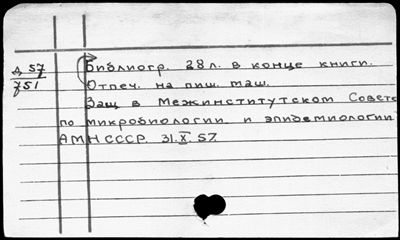 Д 57
751
Библиогр. 28 л. в конце книги.
Отпеч. на пиш. маш.
Защ в Межинститутском Совете
по микробиологии и эпидемиологии
АМН СССР. 31.X.57.